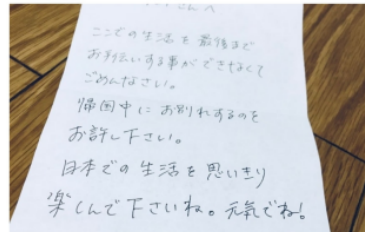 さんへ
ここでの生活を最後まで
お手伝いする事ができなくて
ごめんなさい。
帰国中にお別れするのを
お許し下さい。
日本での生活を思いきり
楽しんで下さいね。元気でね!